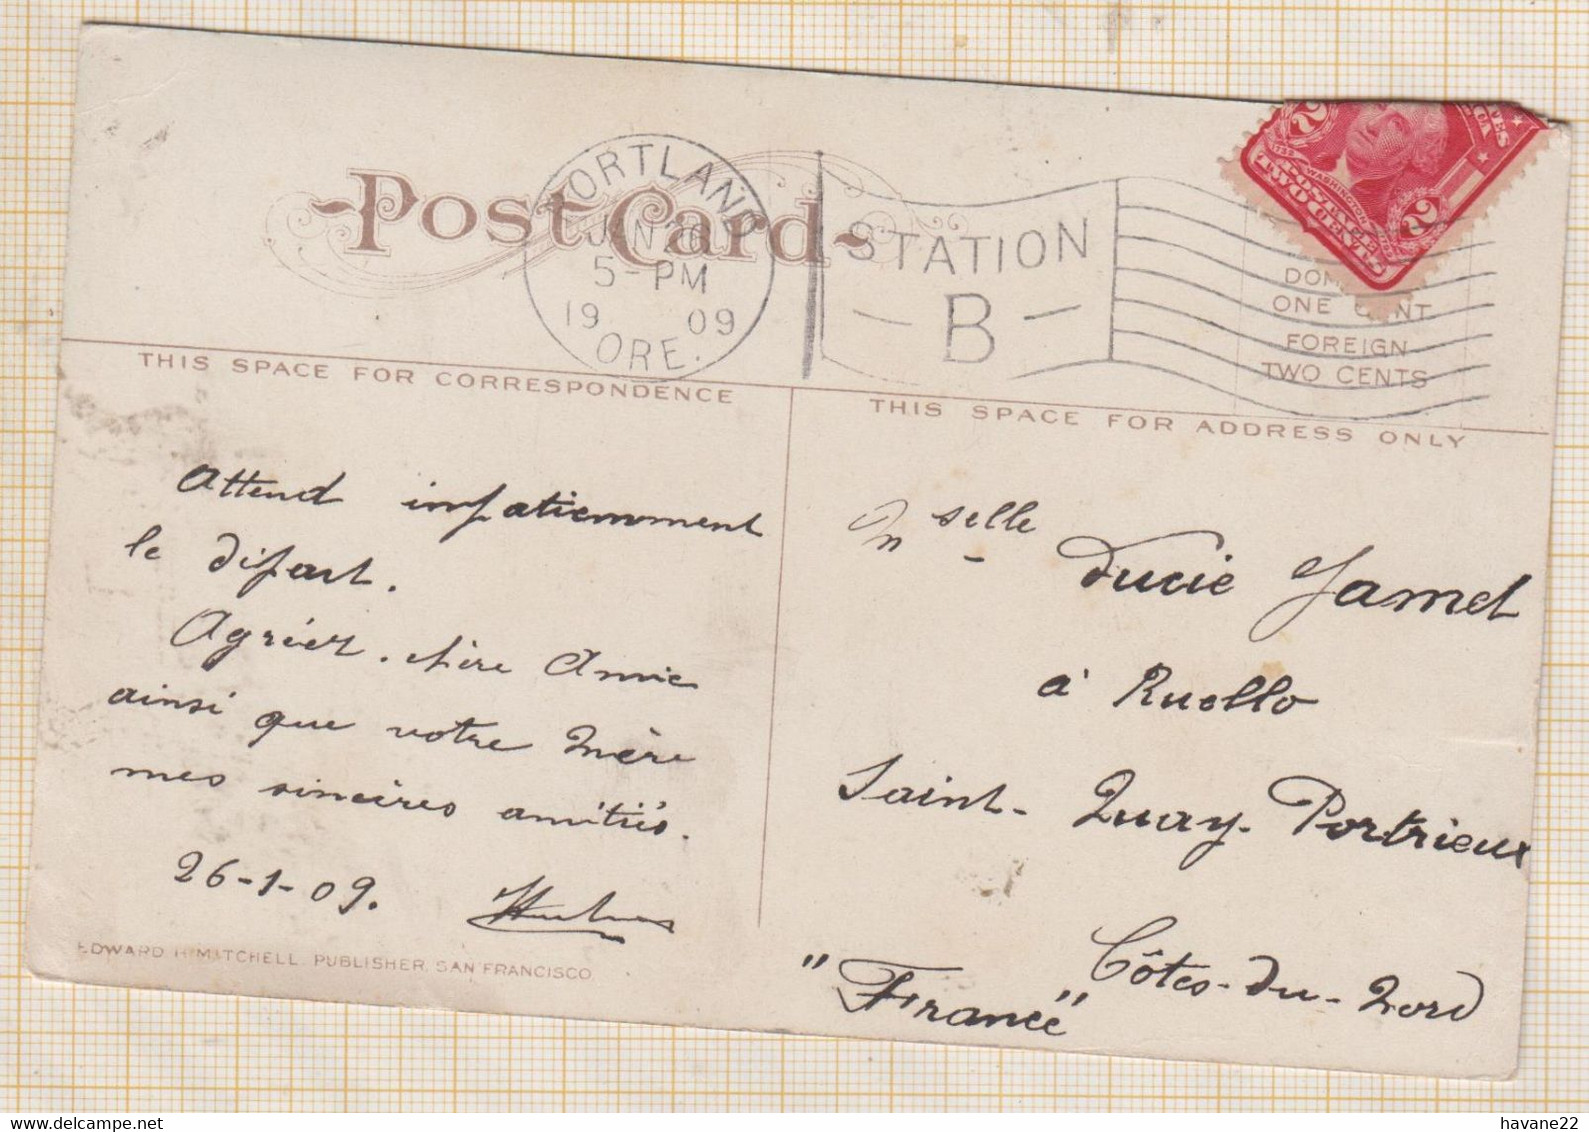 POST CARD
PORTLAND
JAN 26
5-PM
19 09
ORE.
STATION
B
2
2
WASHINGTON
POSTAGE
TWO CENTS
ONE CENT
FOREIGN
TWO CENTS
THIS SPACE FOR CORRESPONDENCE
THIS SPACE FOR ADDRESS ONLY
Attend impatiemment
le départ.
Agréez. chère Amie
ainsi que votre Mère
mes sincères amitiés.
26-1-09.
EDWARD H. MITCHELL, PUBLISHER, SAN FRANCISCO
Mselle Lucie Jamet
à Ruello
Saint-Quay-Portrieux
Côtes-du-Nord
"France"
havane22